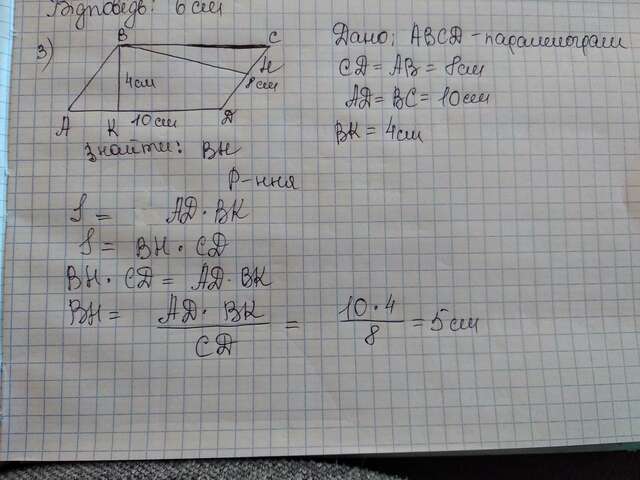 Відповідь: 6 см
3)
B
C
H
4см
8см
A
K
10см
D
Дано: ABCD - паралелограм
CD = AB = 8см
AD = BC = 10см
BK = 4см
Знайти: BH
Р-ння
S = AD · BK
S = BH · CD
BH · CD = AD · BK
BH = AD · BK / CD = 10 · 4 / 8 = 5см